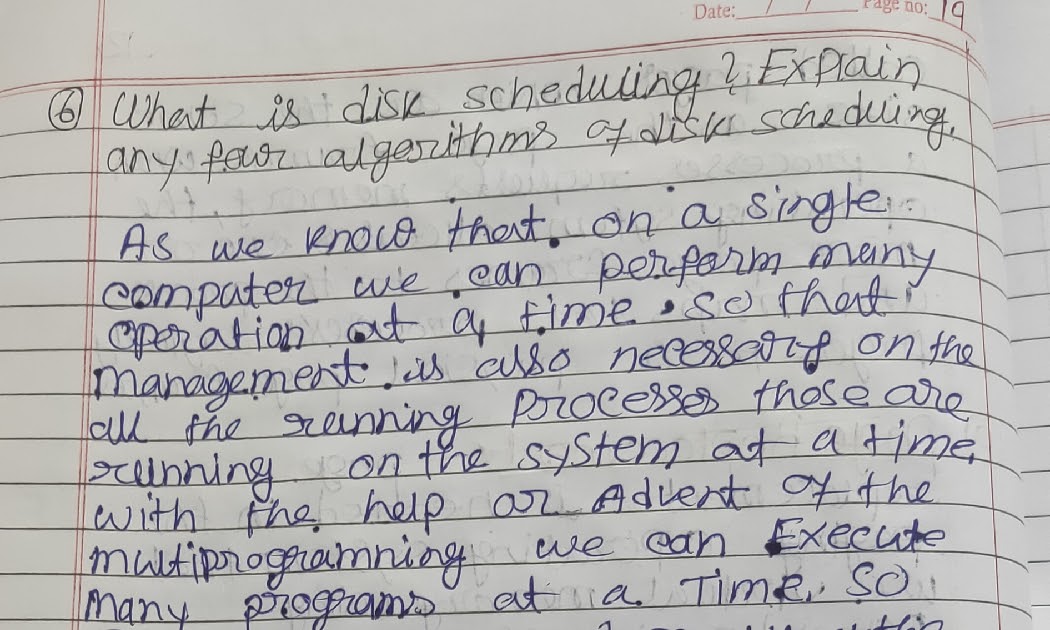 Date: / / Page no: 19
⑥ What is disk scheduling? Explain
any four algorithms of disk scheduling.
As we know that. on a single
computer we can perform many
operation at a time. so that
management is also necessary on the
all the running processes those are
running on the system at a time.
with the help or Advent of the
multiprogramming we can Execute
many programs at a Time. So